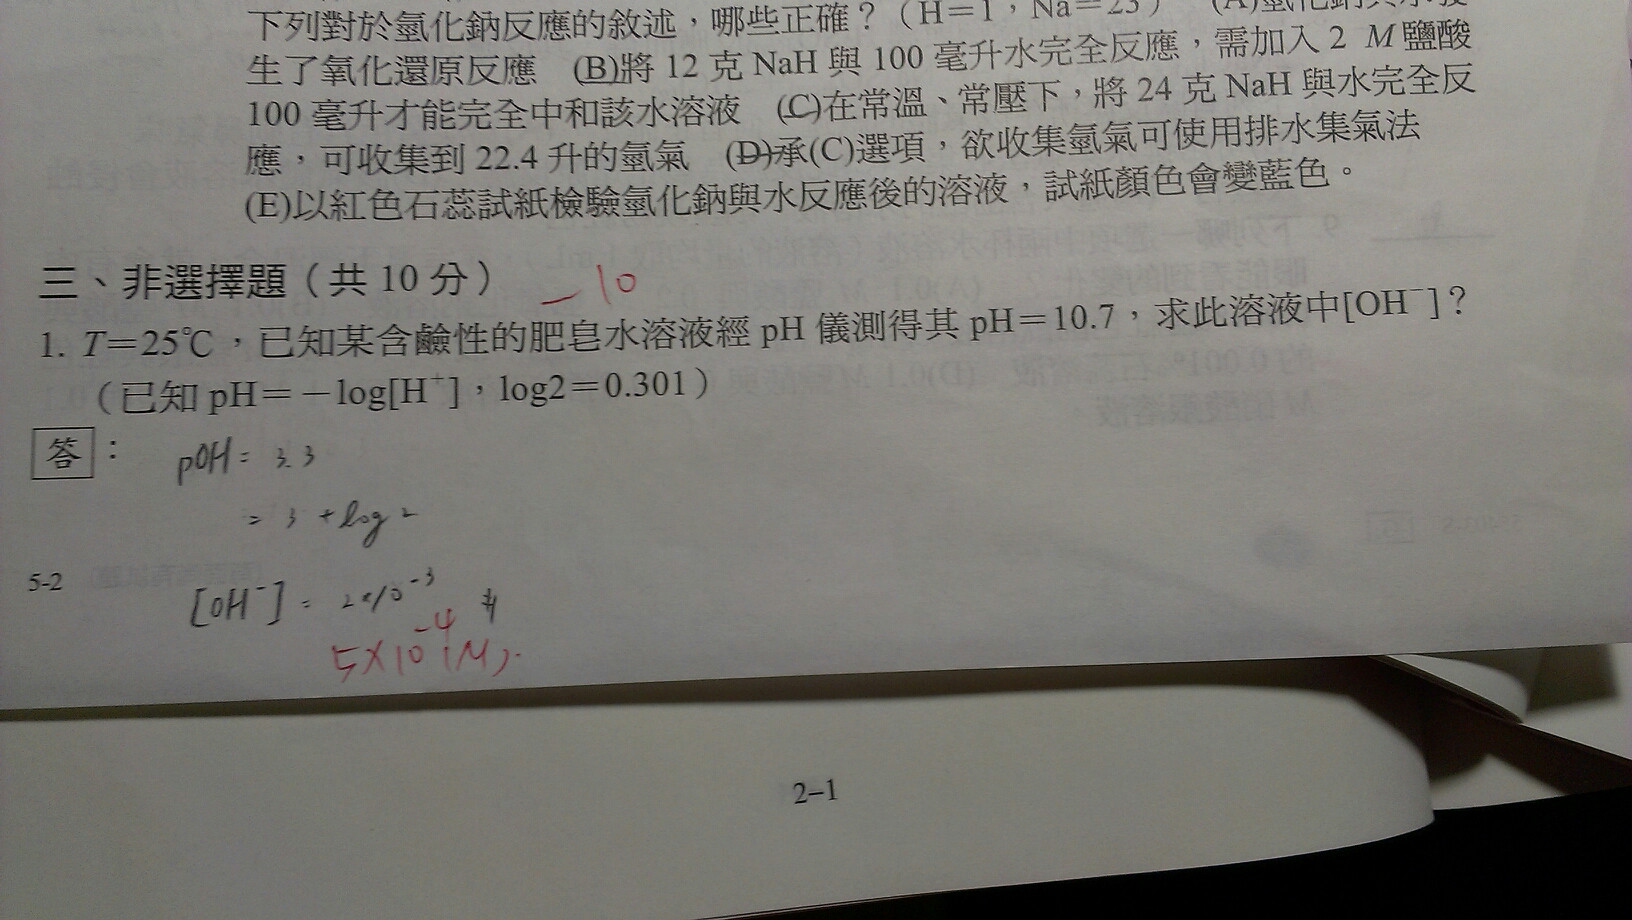 下列對於氫化鈉反應的敘述，哪些正確？（H＝1，Na＝23） (A)氫化鈉與水發
生了氧化還原反應 (B)將 12 克 NaH 與 100 毫升水完全反應，需加入 2 M 鹽酸
100 毫升才能完全中和該水溶液 (C)在常溫、常壓下，將 24 克 NaH 與水完全反
應，可收集到 22.4 升的氫氣 (D)承(C)選項，欲收集氫氣可使用排水集氣法
(E)以紅色石蕊試紙檢驗氫化鈉與水反應後的溶液，試紙顏色會變藍色。
三、非選擇題（共 10 分） －10
1. T＝25℃，已知某含鹼性的肥皂水溶液經 pH 儀測得其 pH＝10.7，求此溶液中[OH⁻]？
（已知 pH＝－log[H⁺]，log2＝0.301）
答： pOH = 3.3
= 3 + log 2
5-2
[OH⁻] = 2×10⁻³ #
5×10⁻⁴(M).
2–1